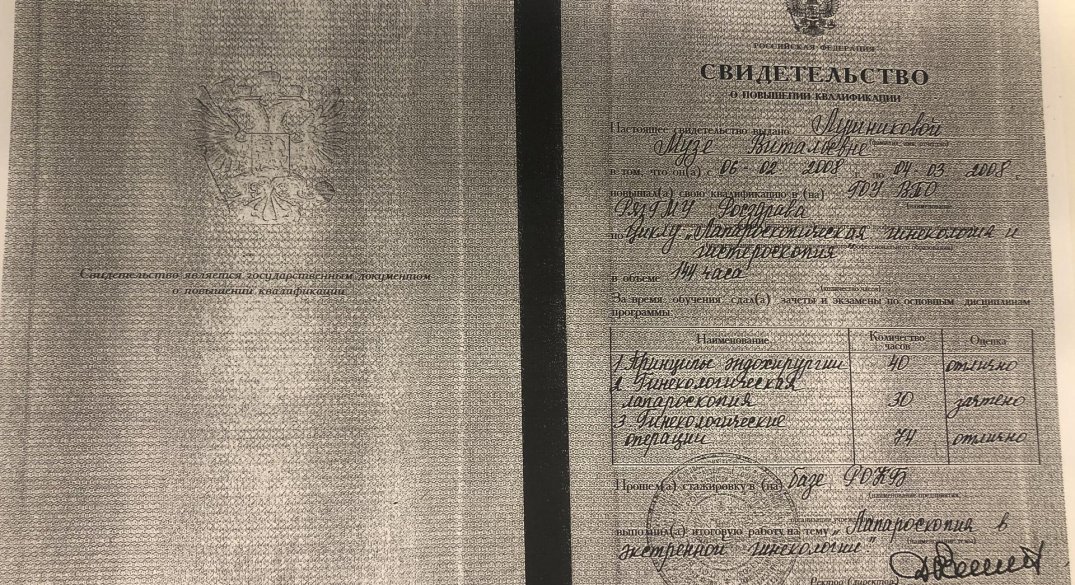 Свидетельство является государственным документом
о повышении квалификации
РОССИЙСКАЯ ФЕДЕРАЦИЯ
СВИДЕТЕЛЬСТВО
О ПОВЫШЕНИИ КВАЛИФИКАЦИИ
Настоящее свидетельство выдано Луниковой
Музе Витальевне
(фамилия, имя, отчество)
в том, что он(а) с 06-02 2008 г. по 04-03 2008.
повышал(а) свою квалификацию в (на) ГОУ ВПО
РязГМУ Росздрава
по Циклу „Лапароскопическая гинекология и
гистероскопия"
в объеме 144 часа
(количество часов)
За время обучения сдал(а) зачеты и экзамены по основным дисциплинам
программы:
Наименование Количество часов Оценка
1. Принципы эндохирургии 40 отлично
2. Гинекологическая
лапароскопия 30 зачтено
3. Гинекологические
операции 74 отлично
Прошел(а) стажировку в (на) базе РОКБ
(наименование предприятия,
организации, учреждения)
выполнил(а) итоговую работу на тему „Лапароскопия в
(наименование темы)
экстренной гинекологии"
Ректор (директор)